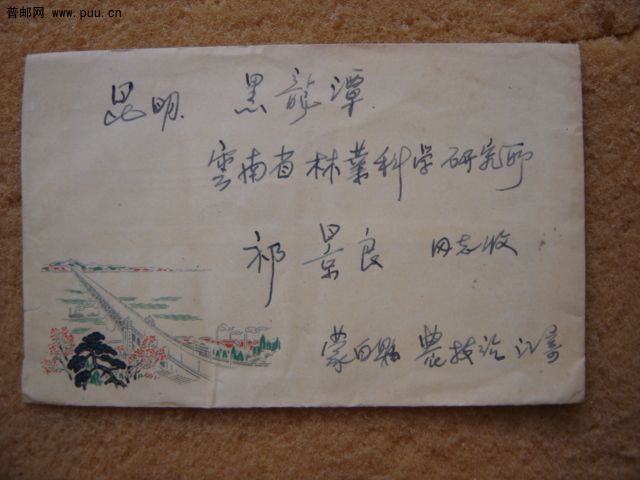 普邮网 www.puu.cn
昆明 黑龍潭
雲南省林業科学研究所
祁景良 同志收
蒙自縣 農技站 江寄